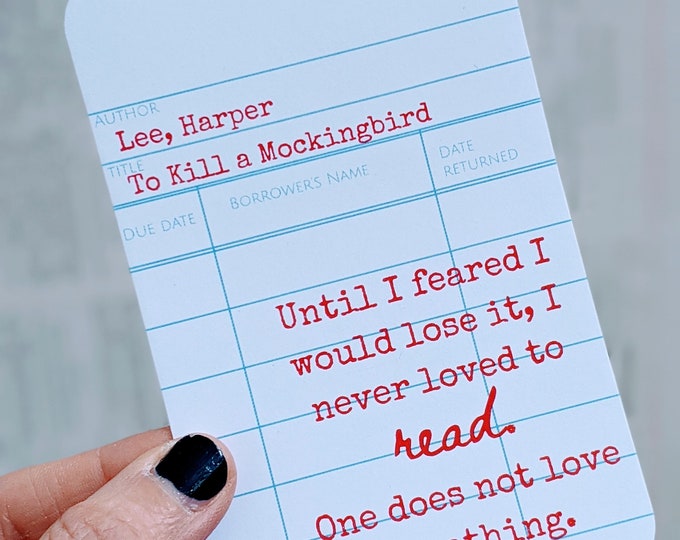 AUTHOR
Lee, Harper
TITLE
To Kill a Mockingbird
DUE DATE BORROWER'S NAME DATE RETURNED
Until I feared I
would lose it, I
never loved to
read.
One does not love
thing.